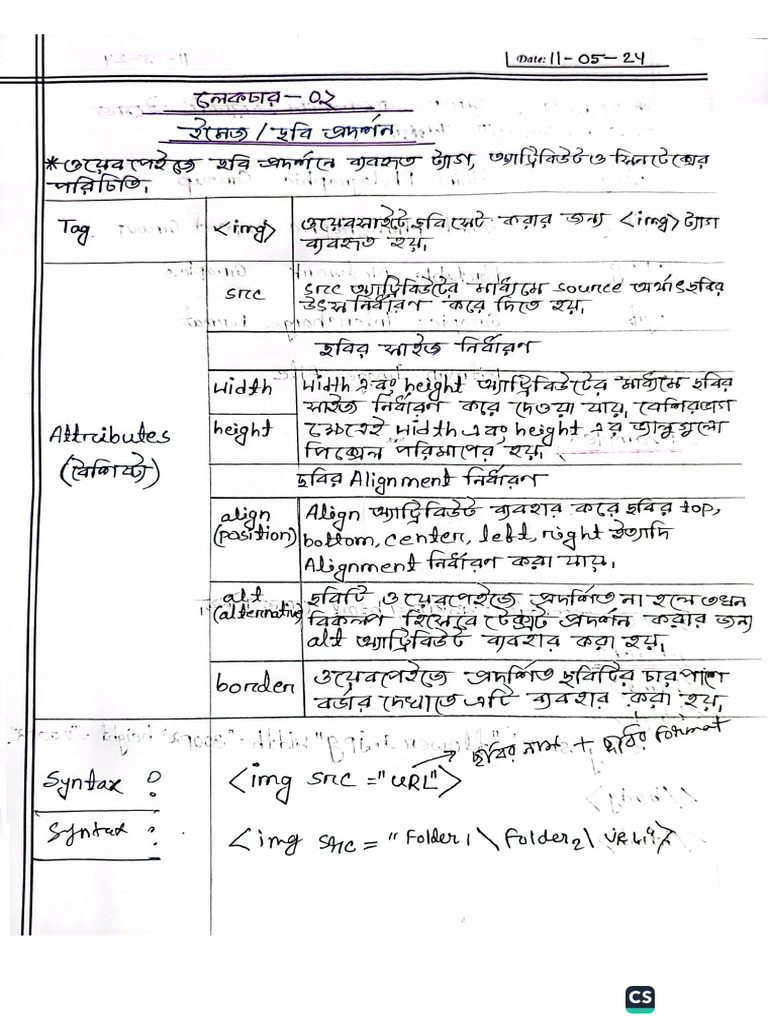 Date: 11-05-24
লেকচার-০২
ইমেজ / ছবি প্রদর্শন
*ওয়েবপেইজে ছবি প্রদর্শনে ব্যবহৃত ট্যাগ, অ্যাট্রিবিউট ও সিনটেক্সের
পরিচিতি।
Tag
<img>
ওয়েবসাইটে ছবি সেট করার জন্য <img> ট্যাগ
ব্যবহৃত হয়।
Attributes
(বৈশিষ্ট্য)
src
src অ্যাট্রিবিউটের মাধ্যমে source অর্থাৎ ছবির
উৎস নির্ধারণ করে দিতে হয়।
ছবির সাইজ নির্ধারণ
width
width এবং height অ্যাট্রিবিউটের মাধ্যমে ছবির
সাইজ নির্ধারণ করে দেওয়া যায়। বেশিরভাগ
height
ক্ষেত্রেই width এবং height এর ভ্যালুগুলো
পিক্সেল পরিমাপের হয়।
ছবির Alignment নির্ধারণ
align
(position)
Align অ্যাট্রিবিউট ব্যবহার করে ছবির top,
bottom, center, left, right ইত্যাদি
Alignment নির্ধারণ করা যায়।
alt
(alternative)
ছবিটি ওয়েবপেইজে প্রদর্শিত না হলে তখন
বিকল্প হিসেবে টেক্সট প্রদর্শন করার জন্য
alt অ্যাট্রিবিউট ব্যবহার করা হয়।
border
ওয়েবপেইজে প্রদর্শিত ছবিটির চারপাশে
বর্ডার দেখাতে এটি ব্যবহার করা হয়।
ছবির নাম + ছবির format
Syntax :
<img src ="URL">
Syntax :
<img src = "Folder1\Folder2\URL">
CS